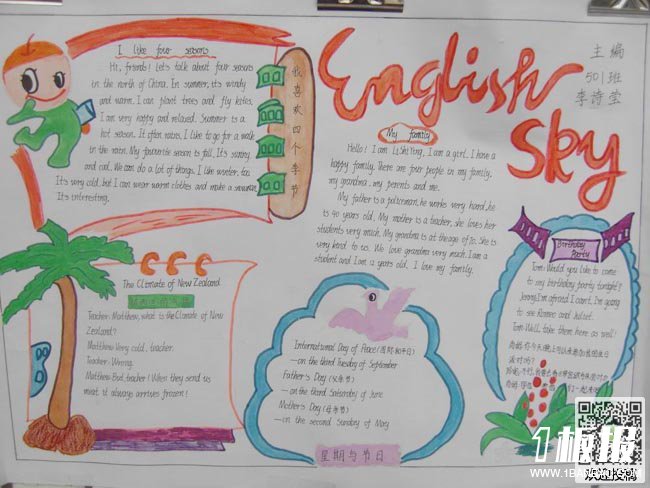 I like four seasons
Hi, friends! Let's talk about four seasons
in the north of China. In summer, it's windy
and warm. I can plant trees and fly kites.
I am very happy and relaxed. Summer is a
hot season. It often rains. I like to go for a walk
in the rain. My favourite season is fall. It's sunny
and cool. We can do a lot of things. I like winter, too.
It's very cold, but I can wear warm clothes and make a snowman.
It's interesting.
我喜欢四个季节
English
Sky
主编
501班
李诗莹
My family
Hello! I am Li ShiYing. I am a girl. I have a
happy family. There are four people in my family,
my grandma, my parents and me.
My father is a policeman, he works very hard, he
is 40 years old. My mother is a teacher, she loves her
students very much. My grandma is at the age of 70. She is
very kind to us. We love grandma very much. I am a
student and I am 12 years old. I love my family.
The Climate of New Zealand
Teacher: Matthew, what is the Climate of New
Zealand?
Matthew: Very cold, teacher.
Teacher: Wrong.
Matthew: But, teacher! When they send us
meat, it always arrives frozen!
International Day of Peace (国际和平日)
—on the third Tuesday of September
Father's Day (父亲节)
—on the third Saturday of June
Mother's Day (母亲节)
—on the second Sunday of May
星期与节日
Birthday
Party
Tom: Would you like to come
to my birthday party tonight?
Jenny: I'm afraid I can't. I'm going
to see Romeo and Juliet.
Tom: Well, take them here as well!
1板报
WWW.1BANBAO.COM